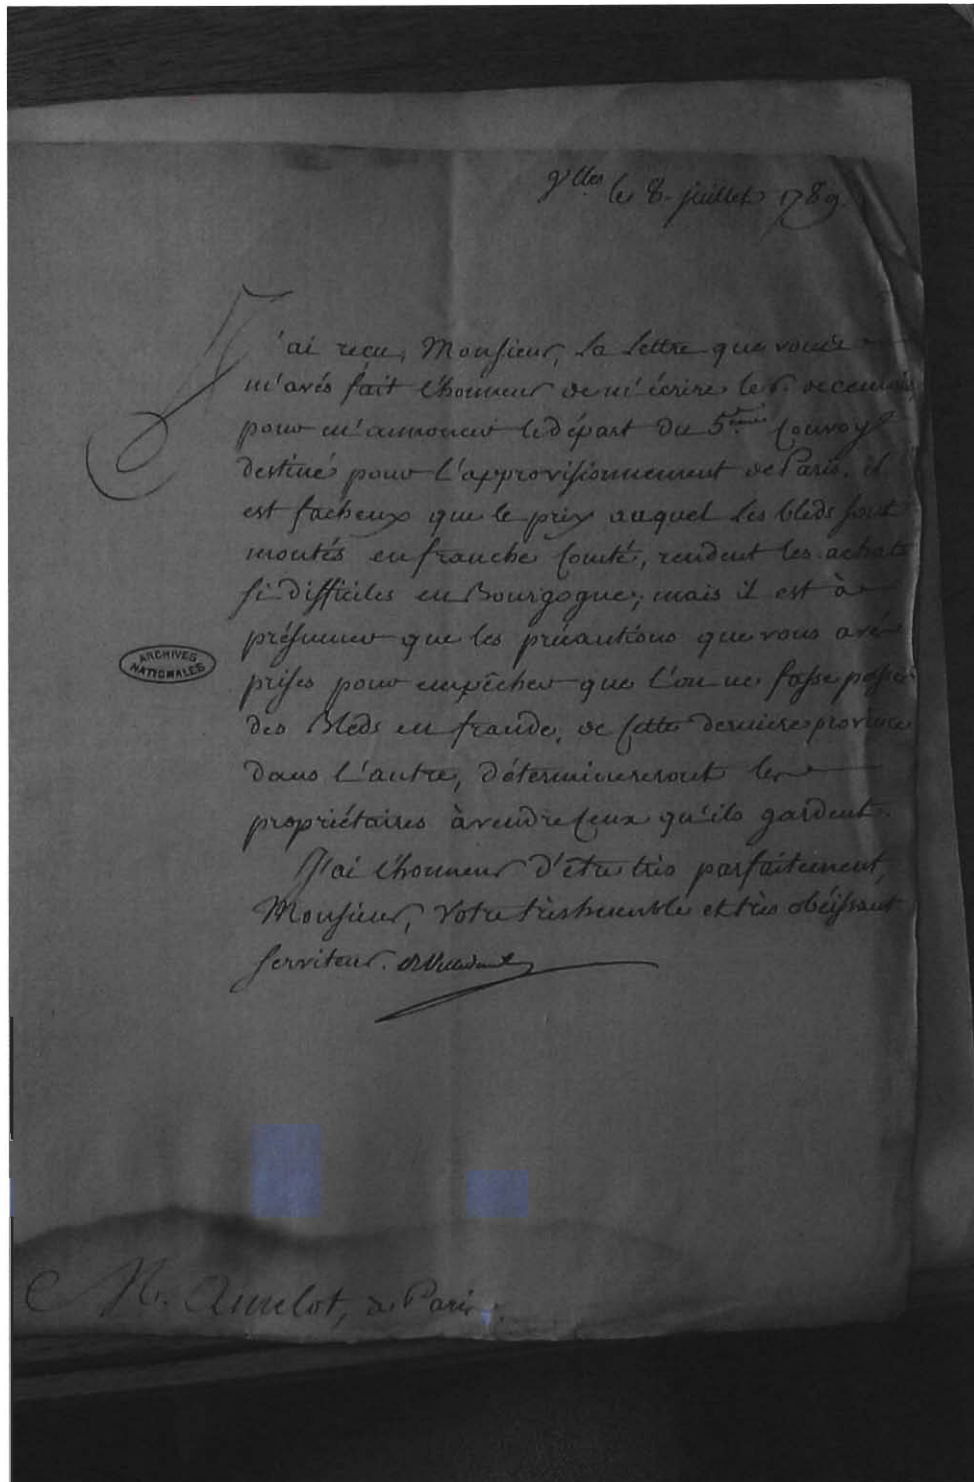 Vlles le 8. juillet 1789.
J'ai reçu, Monsieur, La Lettre que vous
m'avés fait l'honneur de m'écrire le 6. de ce mois,
pour m'annoncer le départ du 5eme Convoy
destiné pour L'approvisionnement de Paris. il
est facheux que le prix auquel les bleds sont
montés en franche Comté, rendent les achats
si difficiles en Bourgogne; mais il est à
présumer que les précautions que vous avés
prises pour empêcher que l'on ne fasse passer
des Bleds en fraude, de cette derniere province
dans L'autre, détermineront les
propriétaires à vendre ceux qu'ils gardent.
J'ai l'honneur d'être très parfaitement,
Monsieur, Votre très humble et très obéissant
serviteur.
ARCHIVES
NATIONALES
M. Amelot, à Paris.